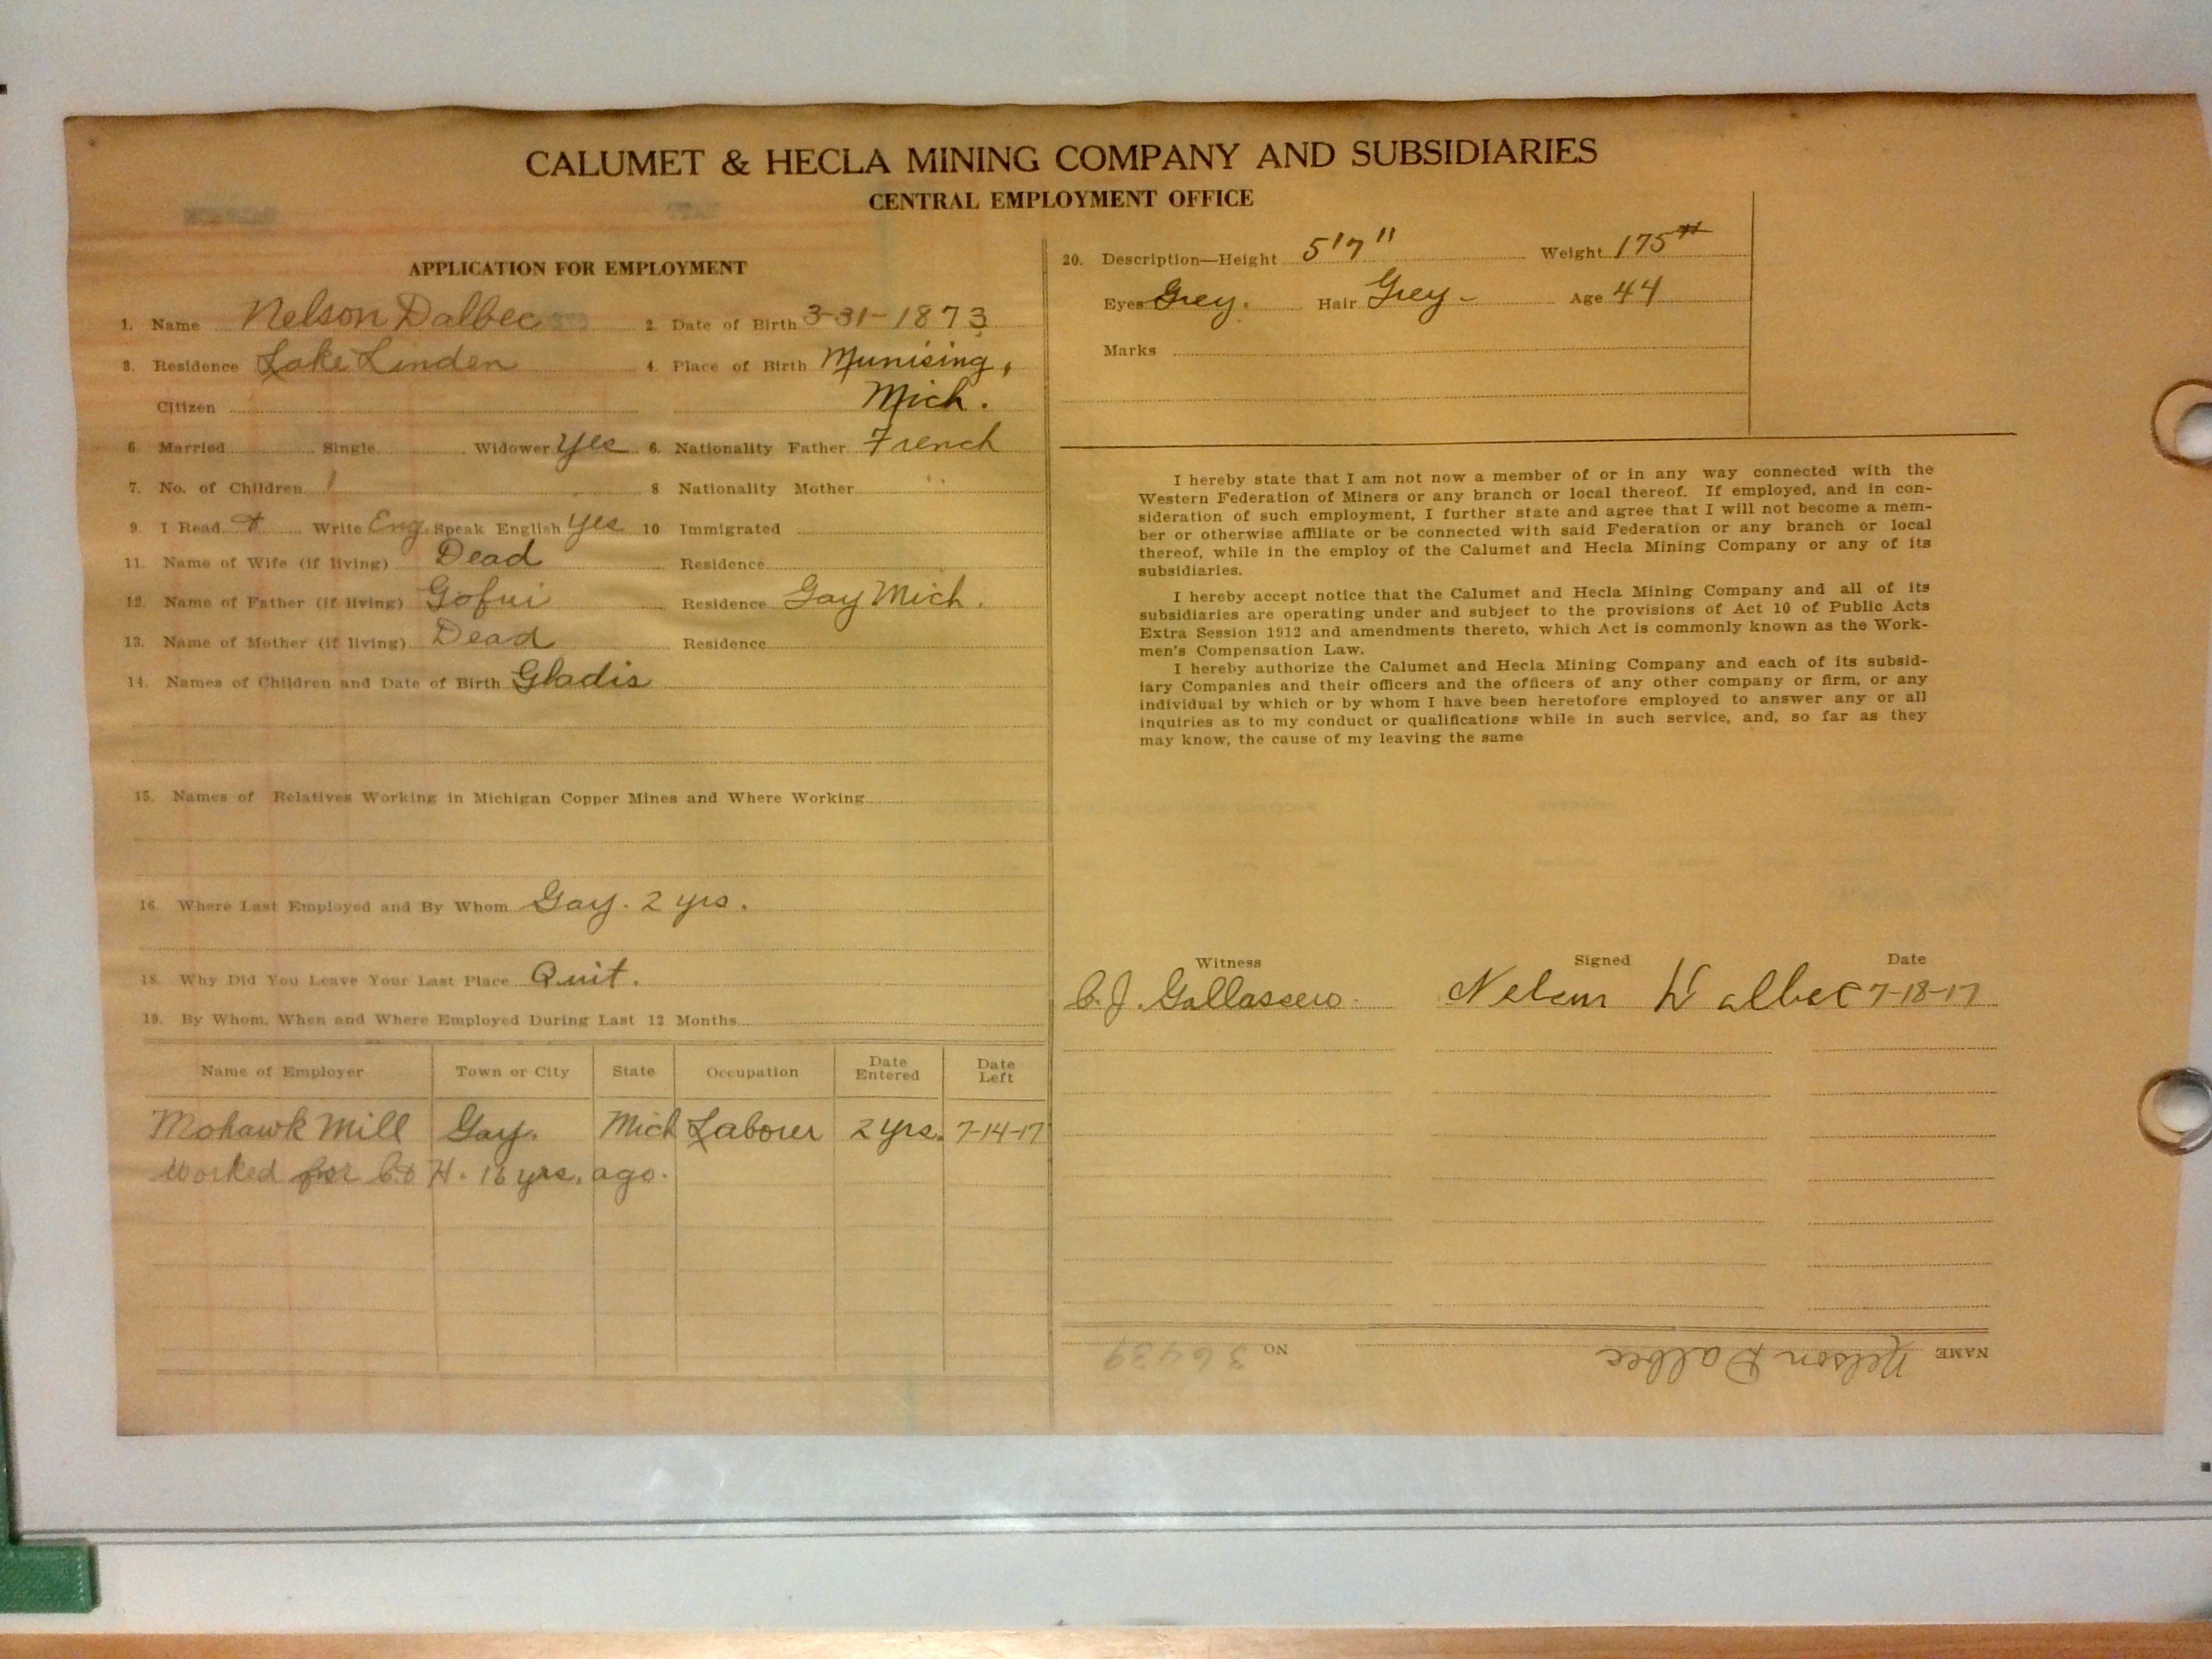 CALUMET & HECLA MINING COMPANY AND SUBSIDIARIES
CENTRAL EMPLOYMENT OFFICE
APPLICATION FOR EMPLOYMENT
1. Name Nelson Dalbec 2. Date of Birth 3-31-1873
3. Residence Lake Linden 4. Place of Birth Munising,
Citizen Mich.
5. Married Single Widower Yes 6. Nationality Father French
7. No. of Children 1 8 Nationality Mother "
9. I Read & Write Eng. Speak English Yes 10 Immigrated
11. Name of Wife (if living) Dead Residence
12. Name of Father (if living) Residence Gay Mich.
13. Name of Mother (if living) Dead Residence
14. Names of Children and Date of Birth Gladis
15. Names of Relatives Working in Michigan Copper Mines and Where Working
16. Where Last Employed and By Whom Gay. 2 yrs.
18. Why Did You Leave Your Last Place Quit.
19. By Whom, When and Where Employed During Last 12 Months
Name of Employer Town or City State Occupation Date Entered Date Left
Mohawk Mill Gay. Mich Laborer 2 yrs. 7-14-17
Worked for C. & H. 16 yrs. ago.
20. Description—Height 5'7" Weight 175#
Eyes Grey. Hair Grey- Age 44
Marks
I hereby state that I am not now a member of or in any way connected with the
Western Federation of Miners or any branch or local thereof. If employed, and in con-
sideration of such employment, I further state and agree that I will not become a mem-
ber or otherwise affiliate or be connected with said Federation or any branch or local
thereof, while in the employ of the Calumet and Hecla Mining Company or any of its
subsidiaries.
I hereby accept notice that the Calumet and Hecla Mining Company and all of its
subsidiaries are operating under and subject to the provisions of Act 10 of Public Acts
Extra Session 1912 and amendments thereto, which Act is commonly known as the Work-
men's Compensation Law.
I hereby authorize the Calumet and Hecla Mining Company and each of its subsid-
iary Companies and their officers and the officers of any other company or firm, or any
individual by which or by whom I have been heretofore employed to answer any or all
inquiries as to my conduct or qualifications while in such service, and, so far as they
may know, the cause of my leaving the same
Witness Signed Date
C. J. Nelson Dalbec 7-18-17
NAME Nelson Dalbec NO 36439